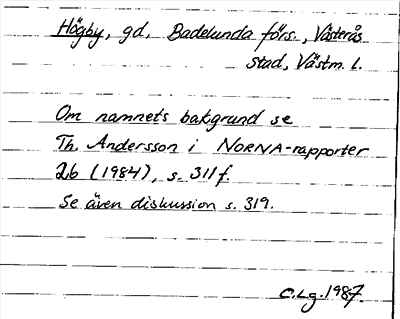 Högby, gd, Badelunda förs., Västerås
stad, Västm. l.
Om namnets bakgrund se
Th. Andersson i NORNA-rapporter
26 (1984), s. 311 f.
Se även diskussion s. 319.
C.Lg. 1987